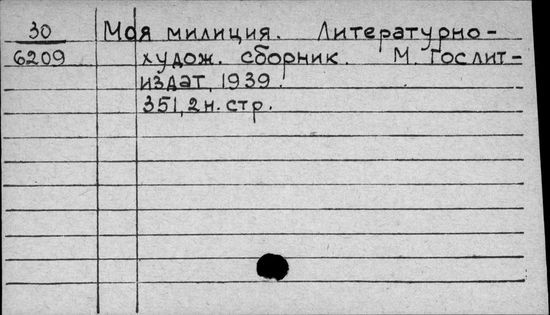 30 Моя милиция. Литературно-
6209 худож. сборник. М. Гослит-
издат, 1939.
351, 2 н. стр.